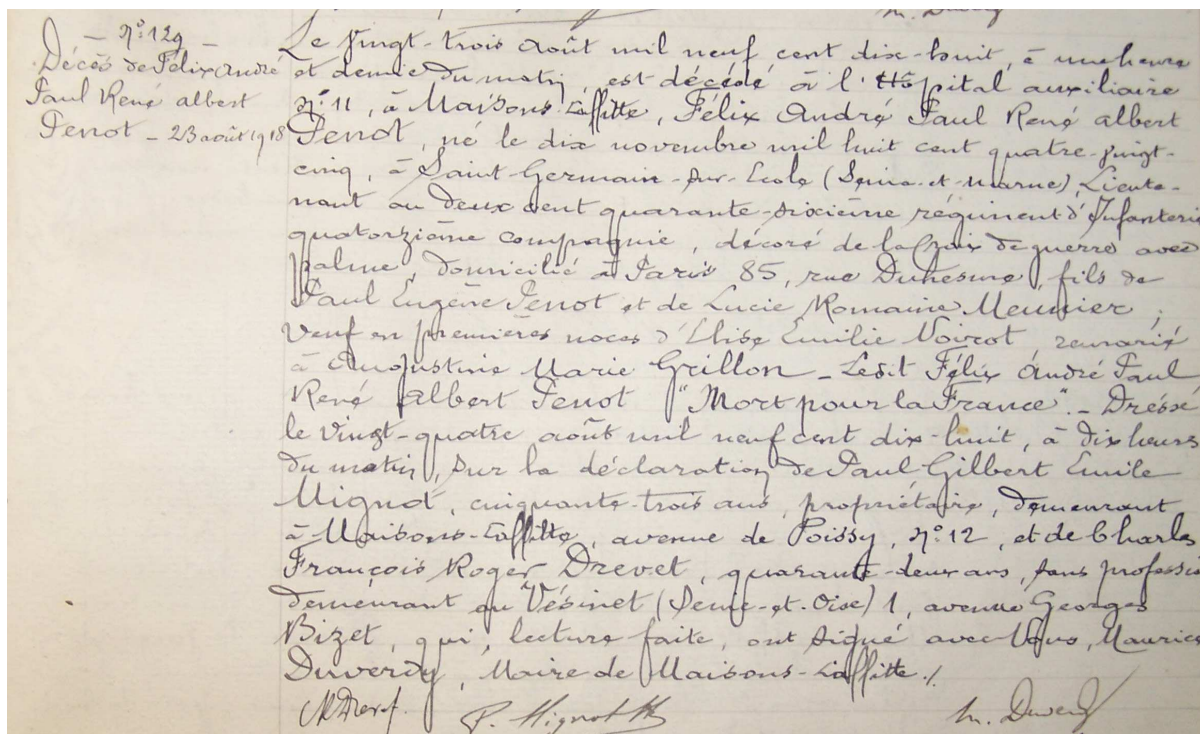 — N° 129 —
Décès de Félix André
Paul René Albert
Penot — 23 août 1918
Le vingt-trois août mil neuf cent dix-huit, à une heure
et demie du matin, est décédé à l'Hôpital auxiliaire
N° 11, à Maisons-Laffitte, Félix André Paul René Albert
Penot, né le dix novembre mil huit cent quatre-vingt-
cinq, à Saint-Germain-sur-École (Seine-et-Marne), Lieute-
nant au deux cent quarante-sixième régiment d'Infanterie
quatorzième compagnie, décoré de la Croix de guerre avec
palme, domicilié à Paris 85, rue Duhesme, fils de
Paul Eugène Penot et de Lucie Romaine Meunier ;
veuf en premières noces d'Elise Emilie Voirot remarié
à Augustine Marie Grillon — Ledit Félix André Paul
René Albert Penot "Mort pour la France". — Dressé
le vingt-quatre août mil neuf cent dix-huit, à dix heures
du matin, sur la déclaration de Paul Gilbert Emile
Mignot, cinquante-trois ans, propriétaire, demeurant
à Maisons-Laffitte, avenue de Poissy, N° 12, et de Charles
François Roger Drevet, quarante-deux ans, sans profession
demeurant au Vésinet (Seine-et-Oise) 1, avenue Georges
Bizet, qui, lecture faite, ont signé avec Nous, Maurice
Duverdy, Maire de Maisons-Laffitte ./.
P. Mignot M. Duverdy